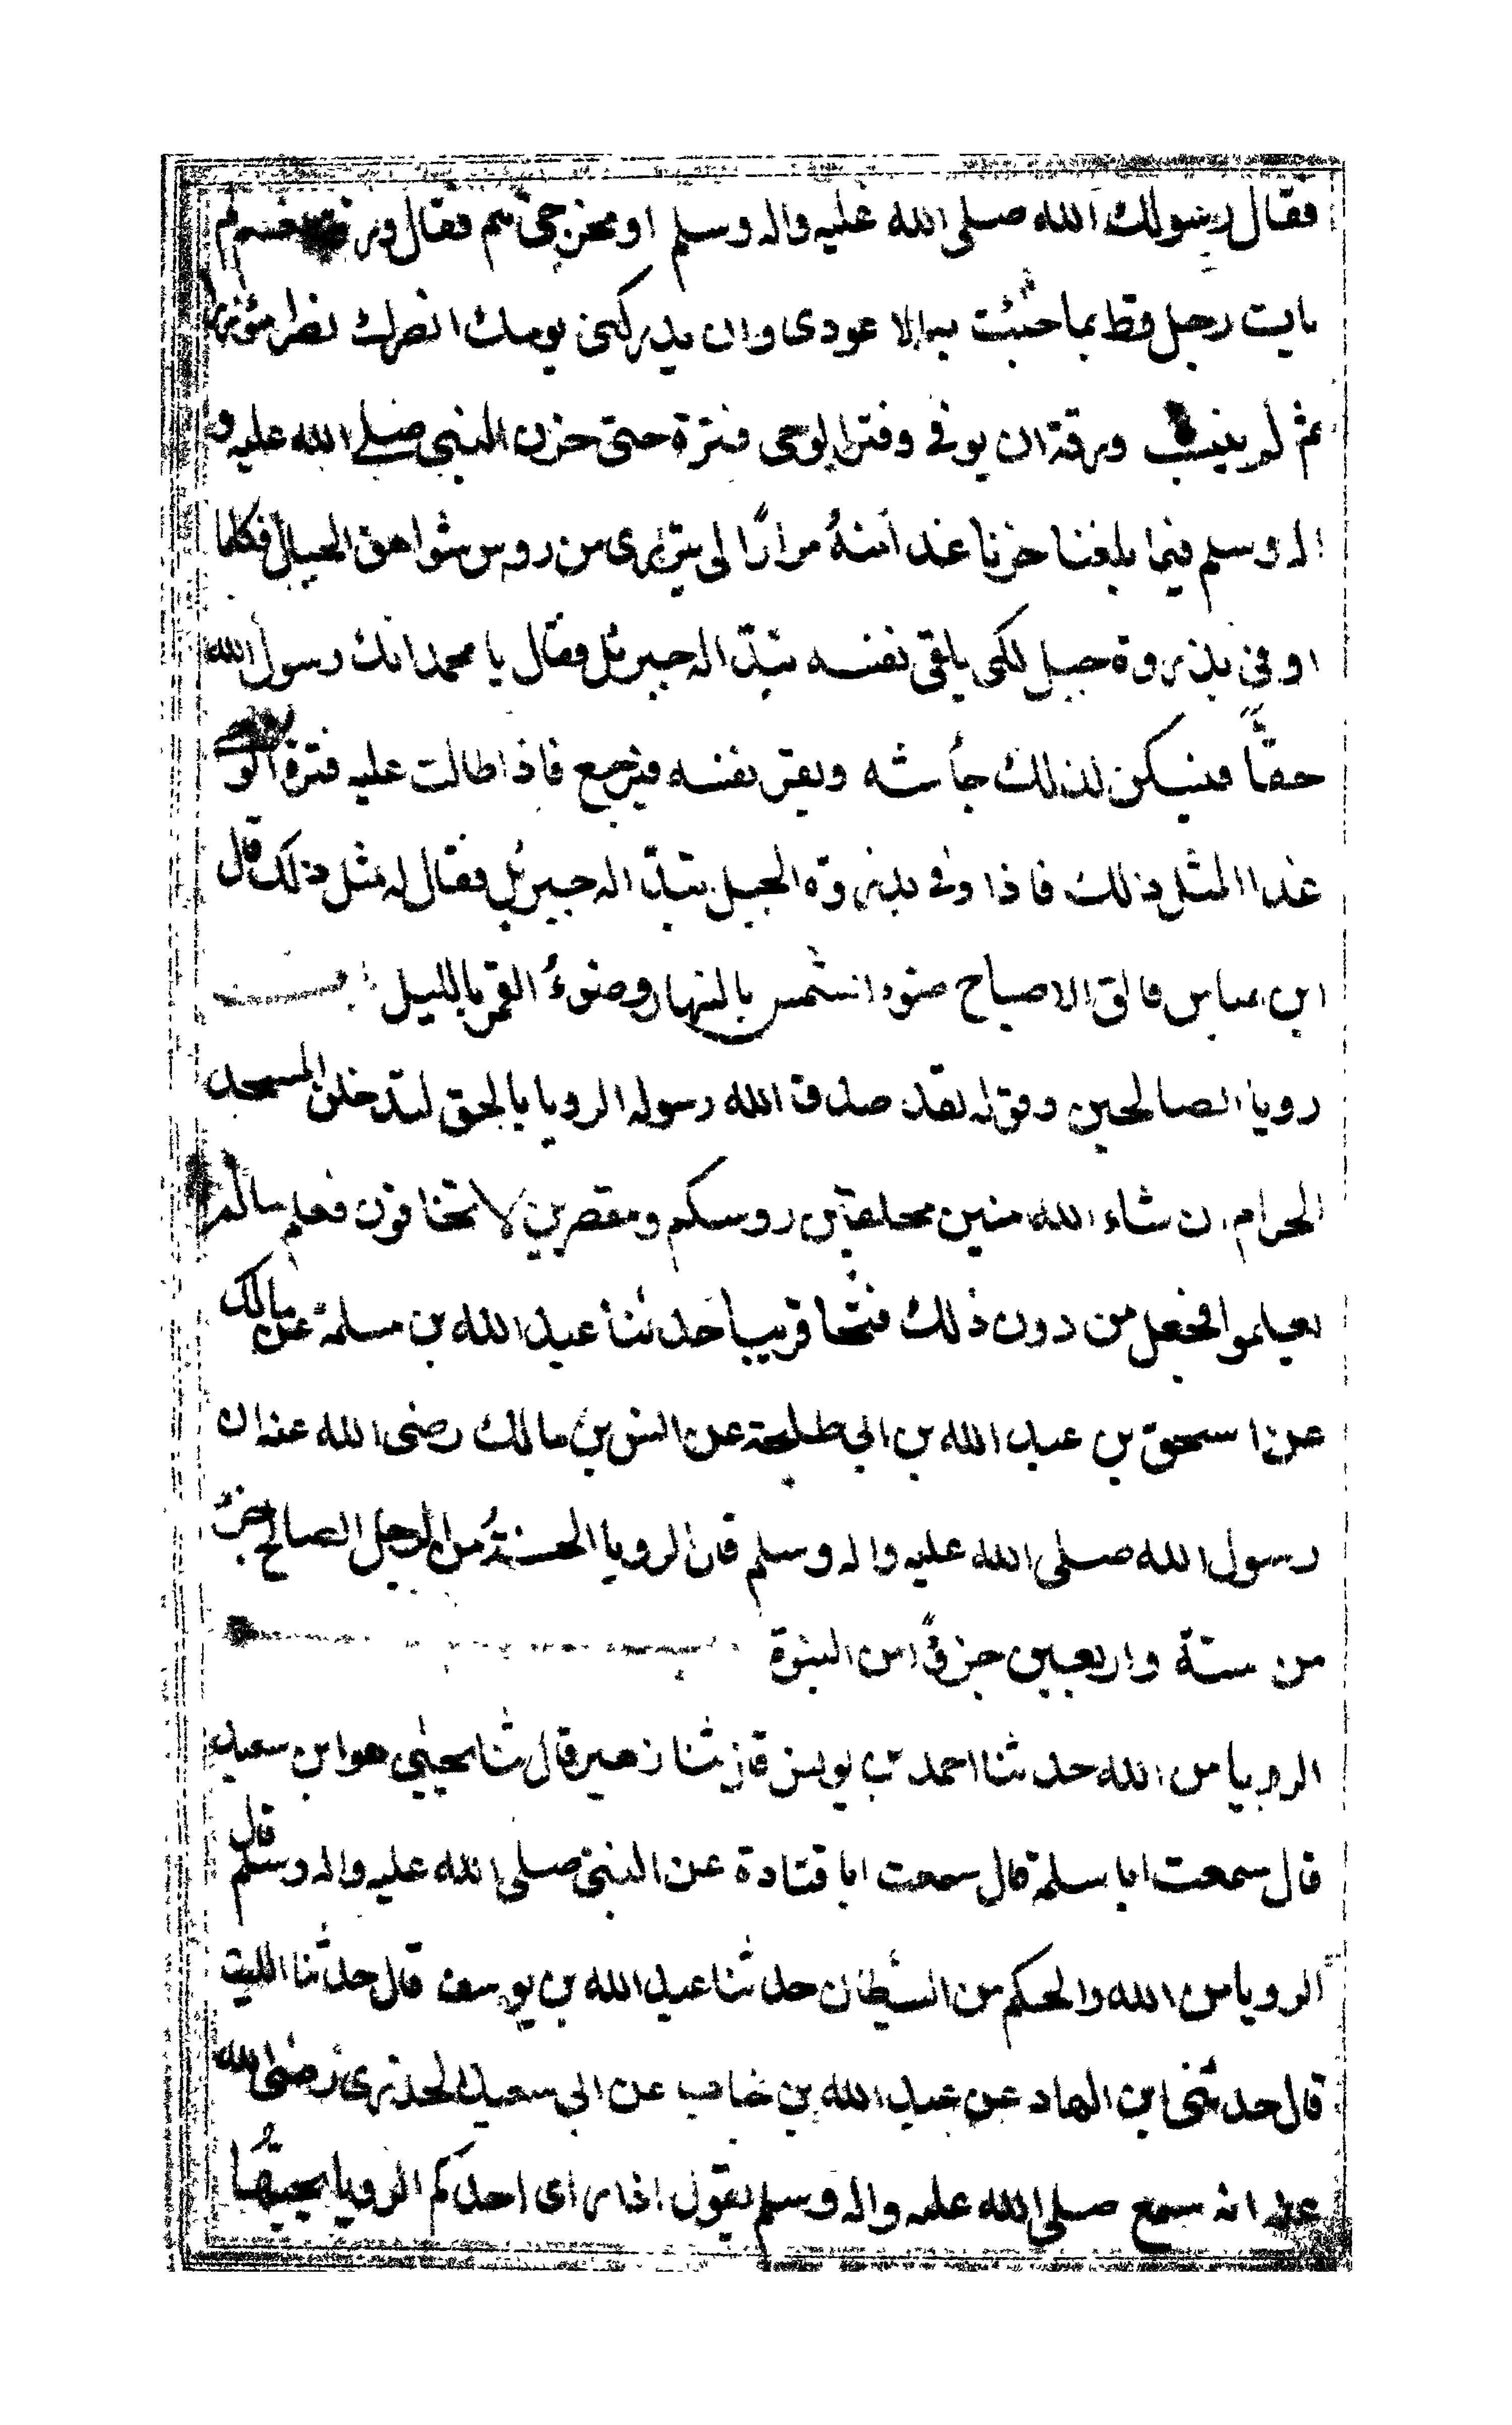 فقال رسول الله صلى الله عليه واله وسلم او مخرجى هم فقال ورقة نعم لم
يات رجل قط بما جئت به الا عودى وان يدركنى يومك انصرك نصرا مؤزرا
ثم لم ينشب ورقة ان توفى وفتر الوحى فترة حتى حزن النبى صلى الله عليه و
اله وسلم فيما بلغنا حزنا غدا منهُ مرارًا لى يتردى من روس شواهق الجبال فكلما
اوفى بذروة جبل لكى يلقى نفسه تبدّا له جبرئل فقال يا محمد انك رسول الله
حقّاً فيسكن لذلك جأشه وتقر نفسه فيرجع فاذا طالت عليه فترة الوحى
غدا المثل ذلك فاذا وفى بذروة الجبل تبدّا له جبرئل فقال له مثل ذلك قال
ابن عباس فالق الاصباح ضوء الشمس بالنهار وضوءُ القمر بالليل
رويا الصالحين وقوله لقد صدق الله رسوله الرويا بالحق لتدخلن المسجد
الحرام ان شاء الله منين محلقين روسكم ومقصرين لا تخافون فعلم مالم
تعلموا فجعل من دون ذلك فتحا قريبا حدثنا عبد الله بن مسلمة عن مالك
عن اسحق بن عبد الله بن ابى طلحة عن انس بن مالك رضى الله عنه ان
رسول الله صلى الله عليه واله وسلم قال الرويا الحسنةُ من الرجل الصالح جزءٌ
من ستة واربعين جزءً من النبوة
الرويا من الله حدثنا احمد بن يونس قال ثنا زهير قال ثنا يحيى هو ابن سعيد
قال سمعت ابا سلمة قال سمعت ابا قتادة عن النبى صلى الله عليه واله وسلم قال
الرويا من الله والحكم من الشيطان حدثنا عبد الله بن يوسف قال حدثنا الليث
قال حدثنى ابن الهاد عن عبد الله بن خباب عن ابى سعيد الخدرى رضى الله
عنه انه سمع صلى الله عليه واله وسلم يقول اذا راى احدكم الرويا يحبُّها